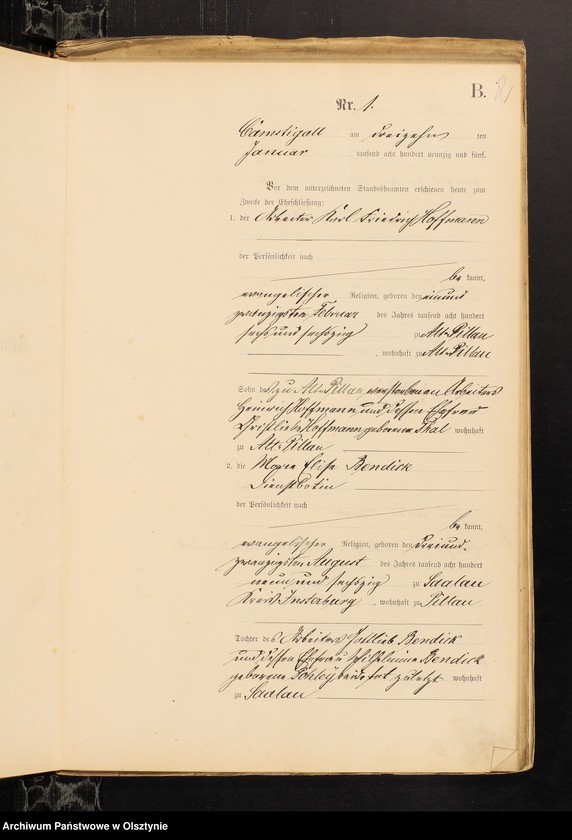 B.
Nr. 1.
Camstigall am dreizehn ten
Januar tausend acht hundert neunzig und fünf.
Vor dem unterzeichneten Standesbeamten erschienen heute zum
Zwecke der Eheschließung:
1. der Arbeiter Karl Friedrich Hoffmann
der Persönlichkeit nach
be kannt,
evangelischer Religion, geboren den einund
zwanzigsten Februar des Jahres tausend acht hundert
sechs und sechszig zu Alt-Pillau
, wohnhaft zu Alt-Pillau
Sohn des zu Alt-Pillau verstorbenen Arbeiters
Heinrich Hoffmann und dessen Ehefrau
Christlieb Hoffmann geborene Thal wohnhaft
zu Alt-Pillau
2. die Marie Elise Bendick
Dienstbotin
der Persönlichkeit nach
be kannt,
evangelischer Religion, geboren den dreiund-
zwanzigsten August des Jahres tausend acht hundert
neun und sechszig zu Saalau
Kreis Instaburg, wohnhaft zu Pillau
Tochter des Arbeiters Gottlieb Bendick
und dessen Ehefrau Wilhelmine Bendick
geborene Pohley beide tot zuletzt wohnhaft
zu Saalau
Archiwum Państwowe w Olsztynie